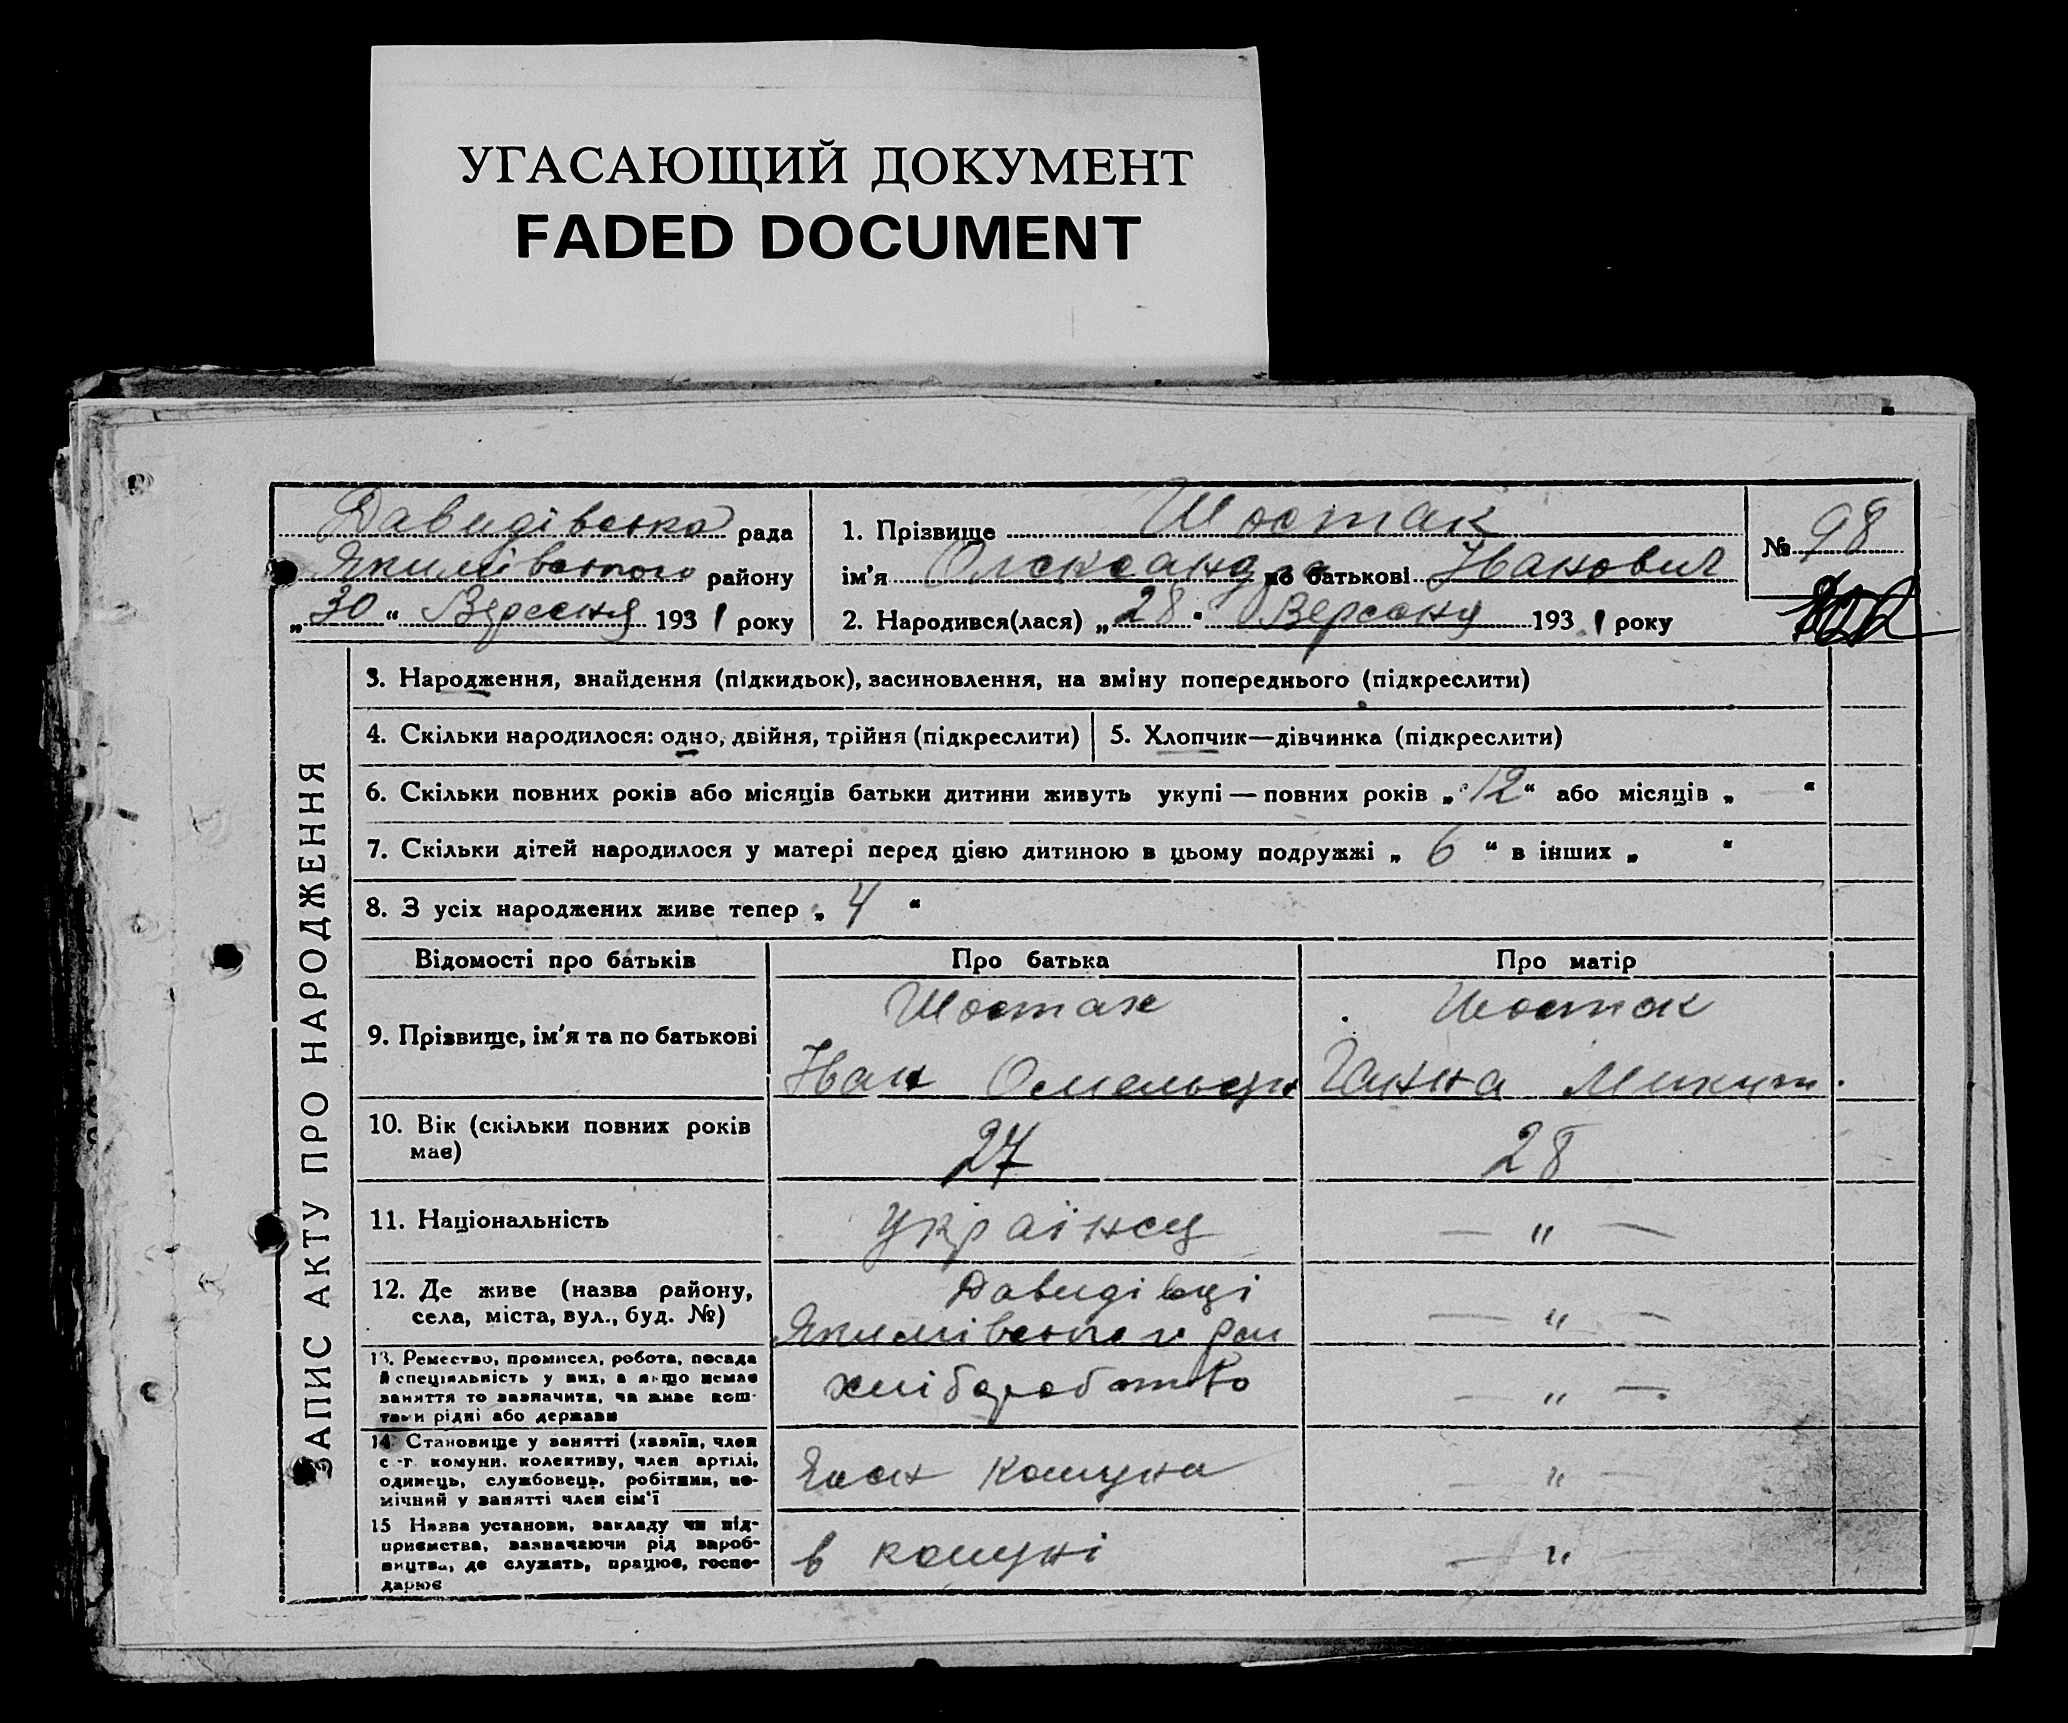 УГАСАЮЩИЙ ДОКУМЕНТ
FADED DOCUMENT
Давидівська рада
Якимівського району
„30“ Вересня 1931 року
1. Прізвище Шостак
ім'я Олександр по батькові Іванович
2. Народився(лася) „28“ Вересня 1931 року
№ 98
ЗАПИС АКТУ ПРО НАРОДЖЕННЯ
3. Народження, знайдення (підкидьок), засиновлення, на зміну попереднього (підкреслити)
4. Скільки народилося: одно, двійня, трійня (підкреслити)
5. Хлопчик—дівчинка (підкреслити)
6. Скільки повних років або місяців батьки дитини живуть укупі — повних років „12“ або місяців „ — “
7. Скільки дітей народилося у матері перед цією дитиною в цьому подружжі „ 6 “ в інших „ “
8. З усіх народжених живе тепер „ 4 “
Відомості про батьків
Про батька
Про матір
9. Прізвище, ім'я та по батькові
Шостак
Іван Омельян
Шостак
Ганна Микит.
10. Вік (скільки повних років
має)
27
28
11. Національність
Українец
— " —
12. Де живе (назва району,
села, міста, вул., буд. №)
Давидівці
Якимівського рай
— " —
13. Ремество, промисел, робота, посада
й спеціяльність у них, а якщо немає
заняття то зазначити, чи живе кош-
тами рідні або держави
хліборобство
— " —.
14. Становище у занятті (хазяїн, член
с.-г. комуни, колективу, член артілі,
одинець, службовець, робітник, по-
мічний у занятті член сім'ї
Член комуни
" —
15 Назва установи, закладу чи під-
приємства, зазначаючи рід вироб-
ництва, де служить, працює, госпо-
дарює
в комуні
— "